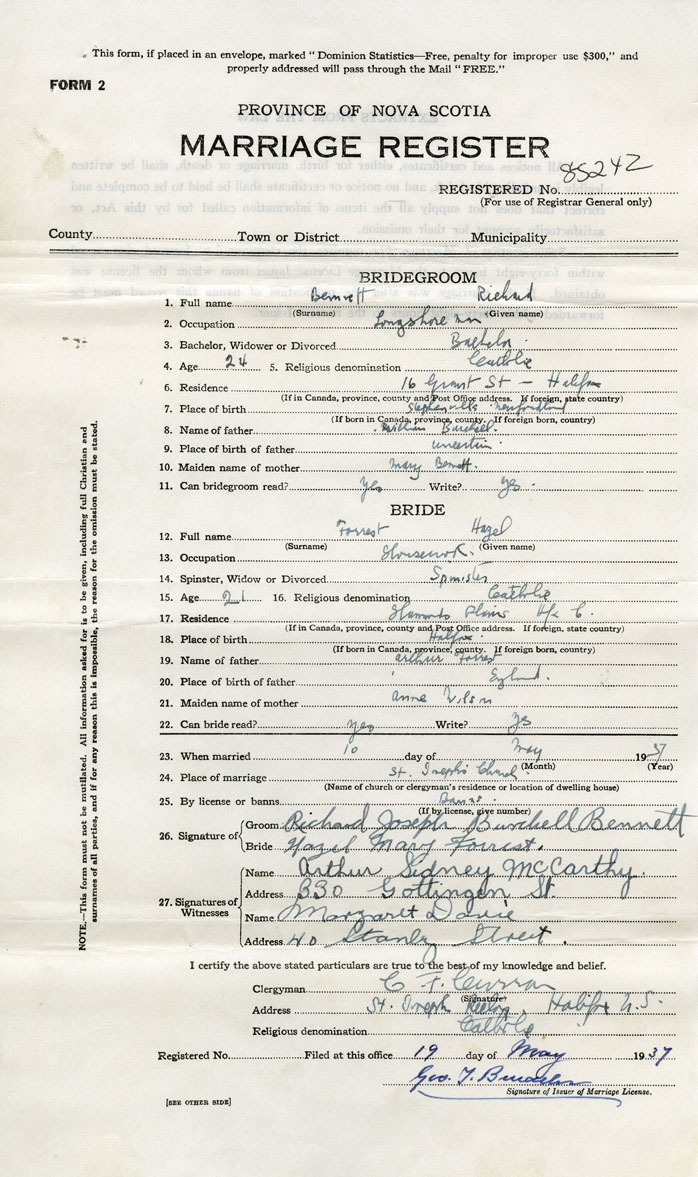 This form, if placed in an envelope, marked "Dominion Statistics—Free, penalty for improper use $300," and
properly addressed will pass through the Mail "FREE."
FORM 2
PROVINCE OF NOVA SCOTIA
MARRIAGE REGISTER
REGISTERED No. 85242
(For use of Registrar General only)
County Town or District Municipality
BRIDEGROOM
1. Full name Bennett Richard
(Surname) (Given name)
2. Occupation Longshoreman
3. Bachelor, Widower or Divorced Bachelor
4. Age 24 5. Religious denomination Catholic
6. Residence 16 Grant St — Halifax
(If in Canada, province, county and Post Office address. If foreign, state country)
7. Place of birth Stephenville Newfoundland
(If born in Canada, province, county. If foreign born, country)
8. Name of father William Burchell
9. Place of birth of father uncertain
10. Maiden name of mother Mary Bennett.
11. Can bridegroom read? Yes Write? Yes
BRIDE
12. Full name Forrest Hazel
(Surname) (Given name)
13. Occupation Housework.
14. Spinster, Widow or Divorced Spinster
15. Age 21 16. Religious denomination Catholic
17. Residence Hammonds Plains Hfx C.
(If in Canada, province, county and Post Office address. If foreign, state country)
18. Place of birth Halifax
(If born in Canada, province, county. If foreign born, country)
19. Name of father Arthur Forrest
20. Place of birth of father England.
21. Maiden name of mother Anne Wilson
22. Can bride read? yes Write? Yes
23. When married 10 day of May 1937
(Month) (Year)
24. Place of marriage St. Joseph's Church
(Name of church or clergyman's residence or location of dwelling house)
25. By license or banns Banns
(If by license, give number)
26. Signature of Groom Richard Joseph Burchell Bennett
Bride Hazel Mary Forrest.
27. Signatures of Witnesses Name Arthur Sidney McCarthy
Address 330 Gottingen St
Name Margaret Davie
Address 40 Stanley Street.
I certify the above stated particulars are true to the best of my knowledge and belief.
Clergyman C. F. Curran
(Signature)
Address St. Joseph Halifax N.S.
Religious denomination Catholic
Registered No. Filed at this office 19 day of May 1937
Geo. T.
Signature of Issuer of Marriage License.
[SEE OTHER SIDE]
NOTE.—This form must not be mutilated. All information asked for is to be given, including full Christian and
surnames of all parties, and if for any reason this is impossible, the reason for the omission must be stated.